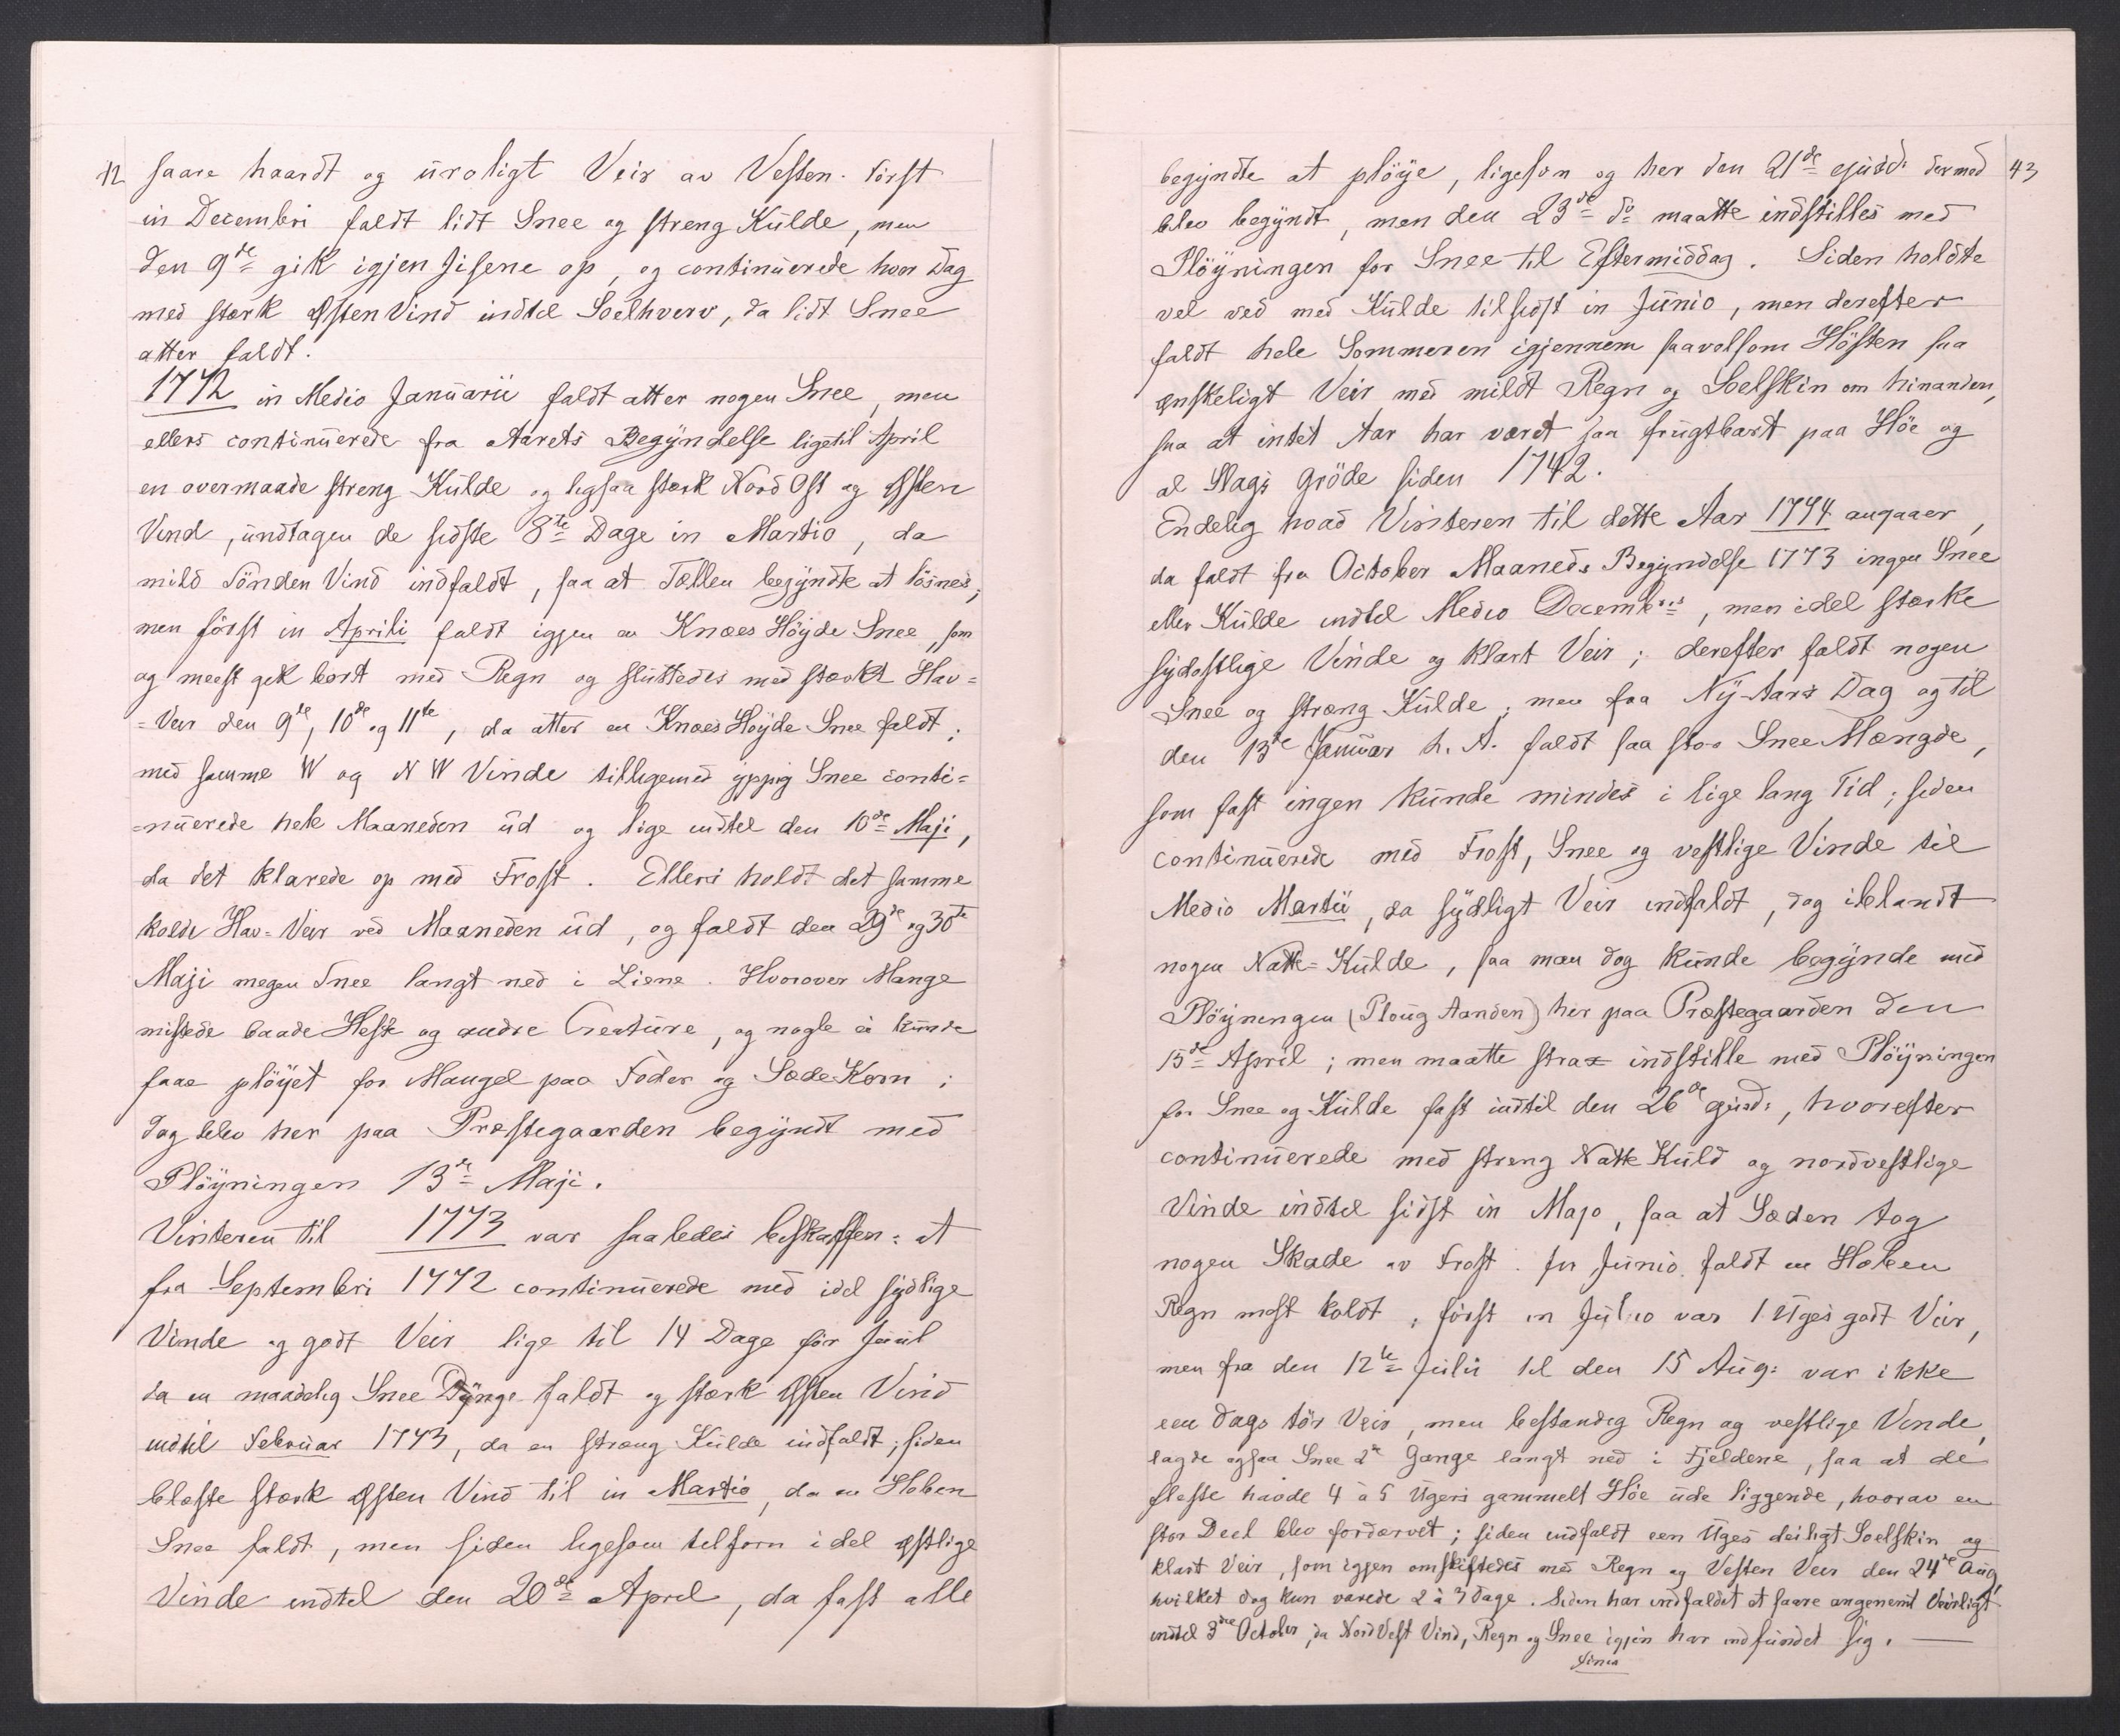 42
saare haardt og uroligt Veir av Vesten. Först
in Decembri faldt lidt Snee og streng Kulde, men
den 9de gik igjen Jisene op, og continuerede hver Dag
med stærk Østen Vind indtil Soelhverv, da lidt Snee
atter faldt.
1772 in Medio Januarii faldt atter nogen Snee, men
ellers continuerede fra Aarets Begyndelse ligetil April
en overmaade streng Kulde og ligsaa stærk Nord Ost og Østen
Vind, undtagen de sidste 8te Dage in Martio, da
mild Sönden Vind indfaldt, saa at Tællen begyndte at lösnes,
men först in Aprili faldt igjen en Knæes Höyde Snee, som
og meest gik bort med Regn og sluttedes med stærkt Hav=
=Veir den 9de, 10de og 11te, da atter en Knæes Höyde Snee faldt;
med samme W og NW Vinde tilligemed yppig Snee conti=
=nuerede hele Maaneden ud og lige indtil den 10de Maji,
da det klarede op med Frost. Ellers holdt det samme
kolde Hav=Veir ved Maaneden ud, og faldt den 29de og 30te
Maji megen Snee langt ned i Liene. Hvorover Mange
mistede baade Heste og andre Creature, og nogle ei kunde
faae plöyet for Mangel paa Foder og Sæde Korn;
dog blev her paa Præstegaarden begyndt med
Plöyningen 13de Maji.
Vinteren til 1773 var saaledes beskaffen: at
fra Septembri 1772 continuerede med idel sydlige
Vinde og godt Veir lige til 14 Dage för Juul
da en maadelig Snee Dynge faldt og stærk Østen Vind
indtil Februar 1773, da en stræng Kulde indfaldt; siden
blæste stærk Østen Vind til in Martio, da en Hoben
Snee faldt, men siden ligesom tilforn idel østlige
Vinde indtil den 20de April, da fast alle
43
begyndte at plöye, ligesom og her den 21de ejusd: dermed
blev begyndt, men den 23de do maatte indstilles med
Plöyningen for Snee til Eftermiddag. Siden holdte
vel ved med Kulde til sidst in Junio, men derefter
faldt hele Sommeren igjennem saavelsom Hösten saa
ønskeligt Veir med mildt Regn og Soelskin om hinanden,
saa at intet Aar har været saa frugtbart paa Höe og
al Slags Gröde siden 1742.
Endelig hvad Vinteren til dette Aar 1774 angaaer,
da faldt fra October Maaneds Begyndelse 1773 ingen Snee
eller Kulde indtil Medio Decembris, men idel stærke
sydostlige Vinde og klart Veir; derefter faldt nogen
Snee og stræng Kulde; men fra Ny-Aars Dag og til
den 13de Januar h. A. faldt saa stor Snee Mængde,
som fast ingen kunde mindes i lige lang Tid; siden
continuerede med Frost, Snee og vestlige Vinde til
Medio Martii, da sydligt Veir indfaldt, dog iblandt
nogen Natte=Kulde, saa man dog kunde begynde med
Plöyningen (Ploug Aanden) her paa Præstegaarden den
15de April; men maatte strax indstille med Plöyningen
for Snee og Kulde fast indtil den 26de ejusd:, hvorefter
continuerede med streng Natte Kuld og nordvestlige
Vinde indtil sidst in Majo, saa at Sæden tog
nogen Skade av Frost. In Junio faldt en Hoben
Regn mest koldt; först in Julio var 1 Uges godt Veir,
men fra den 12te Julii til den 15 Aug: var ikke
een Dags tör Veir, men bestandig Regn og vestlige Vinde,
lagde ogsaa Snee 2de Gange langt ned i Fjeldene, saa at de
fleste havde 4 à 5 Ugers gammelt Höe ude liggende, hvorav en
stor Deel blev fordærvet; siden indfaldt een Uges deiligt Soelskin og
klart Veir, som igjen omskiftedes med Regn og Vesten Veir den 24de Aug,
hvilket dog kun varede 2 à 3 Dage. Siden har indfaldet et saare angenemt Veirligt
indtil 3die October, da Nord Vest Vind, Regn og Snee igjen har indfundet sig. —
Finis